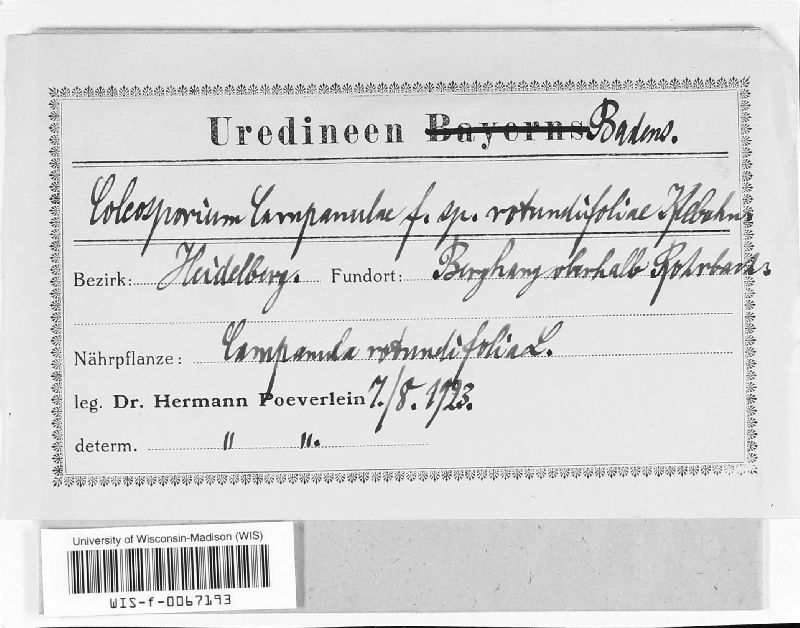 Uredineen Bayerns Badens.
Coleosporium Campanulae f. sp. rotundifoliae Klebahn.
Bezirk: Heidelberg. Fundort: Berghang oberhalb Rohrbach.
Nährpflanze: Campanula rotundifolia L.
leg. Dr. Hermann Poeverlein 7./8. 1923.
determ. " ".
University of Wisconsin-Madison (WIS)
WIS-f-0067193